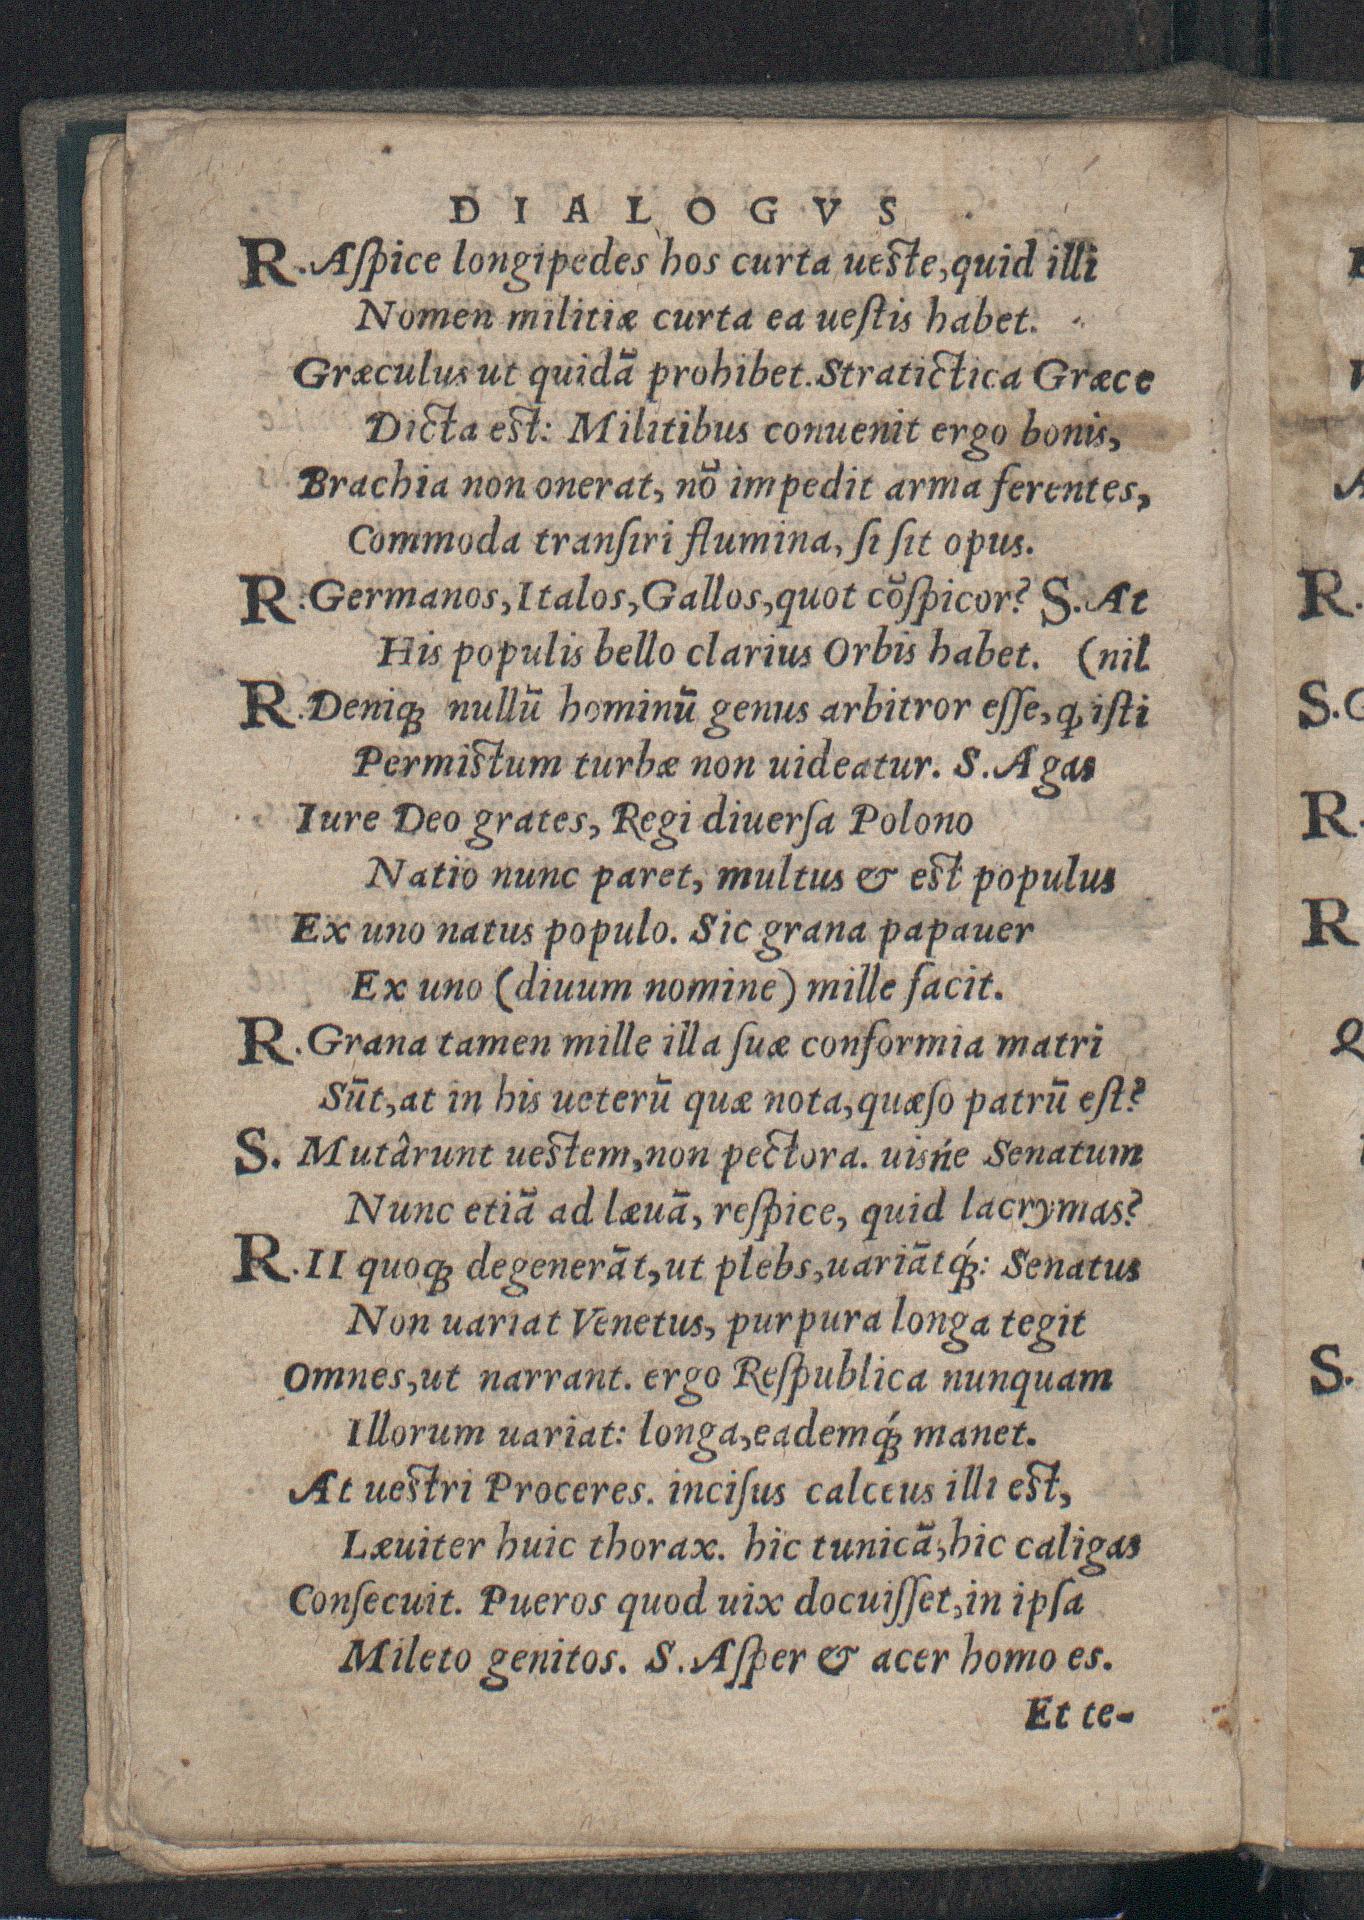 DIALOGVS
R. Aſpice longipedes hos curta ueſte, quid illi
Nomen militiæ curta ea ueſtis habet.
Græculus ut quidā prohibet. Stratictica Græce
Dicta eſt: Militibus conuenit ergo bonis,
Brachia non onerat, nō impedit arma ferentes,
Commoda tranſiri flumina, ſi ſit opus.
R. Germanos, Italos, Gallos, quot cōſpicor? S. At
His populis bello clarius Orbis habet. (nil
R. Deniqꝫ nullū hominū genus arbitror eſſe, ꝙ iſti
Permiſtum turbæ non uideatur. S. Agas
Iure Deo grates, Regi diuerſa Polono
Natio nunc paret, multus & eſt populus
Ex uno natus populo. Sic grana papauer
Ex uno (diuum nomine) mille facit.
R. Grana tamen mille illa ſuæ conformia matri
Sūt, at in his ueterū quæ nota, quæſo patrū eſt?
S. Mutârunt ueſtem, non pectora. uisńe Senatum
Nunc etiā ad læuā, reſpice, quid lacrymas?
R. II quoqꝫ degenerāt, ut plebs, uariātq́ꝫ: Senatus
Non uariat Venetus, purpura longa tegit
Omnes, ut narrant. ergo Reſpublica nunquam
Illorum uariat: longa, eademq́ꝫ manet.
At ueſtri Proceres. inciſus calceus illi eſt,
Læuiter huic thorax. hic tunicā, hic caligas
Conſecuit. Pueros quod uix docuiſſet, in ipſa
Mileto genitos. S. Aſper & acer homo es.
Et te-
R.
S. G
R.
R
S.